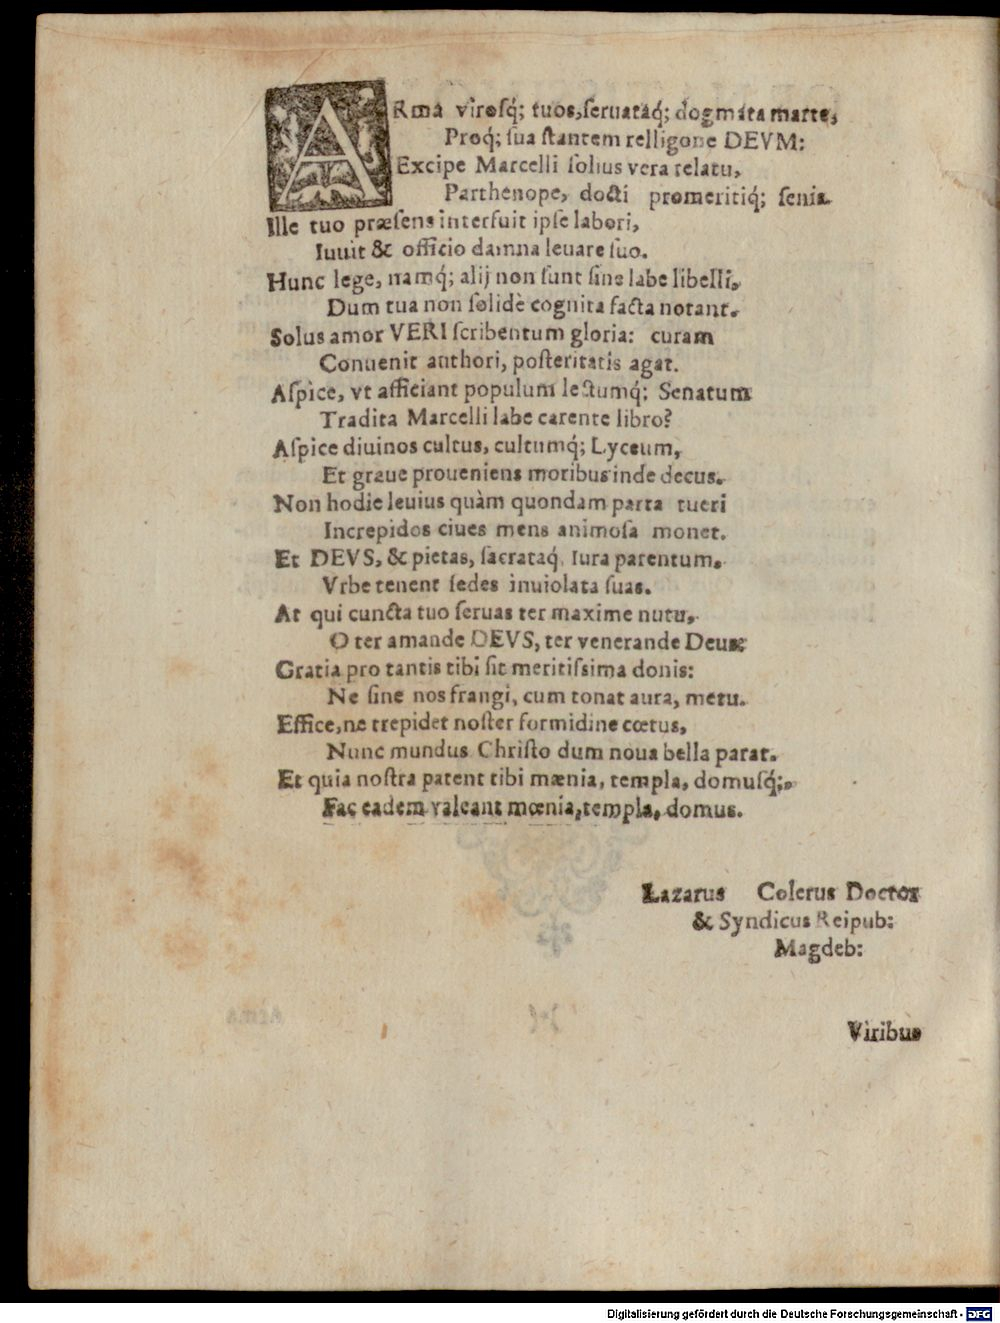 ARma virosq́; tuos, ſeruataq́; dogmata marte,
Proq́; ſua ſtantem relligone DEVM:
Excipe Marcelli ſolius vera relatu,
Parthenope, docti promeritiq́; ſenis.
Ille tuo præſens interfuit ipſe labori,
Iuuit & officio damna leuare ſuo.
Hunc lege, namq́; alij non ſunt ſine labe libelli,
Dum tua non ſolidè cognita facta notant.
Solus amor VERI ſcribentum gloria: curam
Conuenit authori, poſteritatis agat.
Aſpice, vt afficiant populum lectumq́; Senatum
Tradita Marcelli labe carente libro?
Aſpice diuinos cultus, cultumq́; Lyceum,
Et graue proueniens moribus inde decus.
Non hodie leuius quàm quondam parta tueri
Increpidos ciues mens animoſa monet.
Et DEVS, & pietas, ſacrataq́; iura parentum,
Vrbe tenent ſedes inuiolata ſuas.
At qui cuncta tuo ſeruas ter maxime nutu,
O ter amande DEVS, ter venerande Deus:
Gratia pro tantis tibi ſit meritiſsima donis:
Ne ſine nos frangi, cum tonat aura, metu.
Effice, ne trepidet noſter formidine cœtus,
Nunc mundus Chriſto dum noua bella parat.
Et quia noſtra patent tibi mænia, templa, domuſq́;,
Fac eadem valeant mœnia, templa, domus.
Lazarus Colerus Doctor
& Syndicus Reipub:
Magdeb:
Viribus
Digitalisierung gefördert durch die Deutsche Forschungsgemeinschaft - DFG